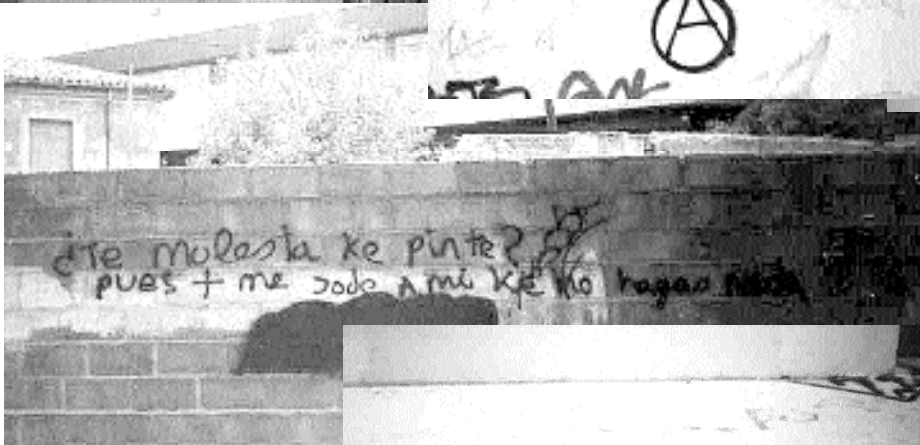 Ⓐ
¿Te molesta ke pinte?
pues + me jode A mi ke no hagas nada